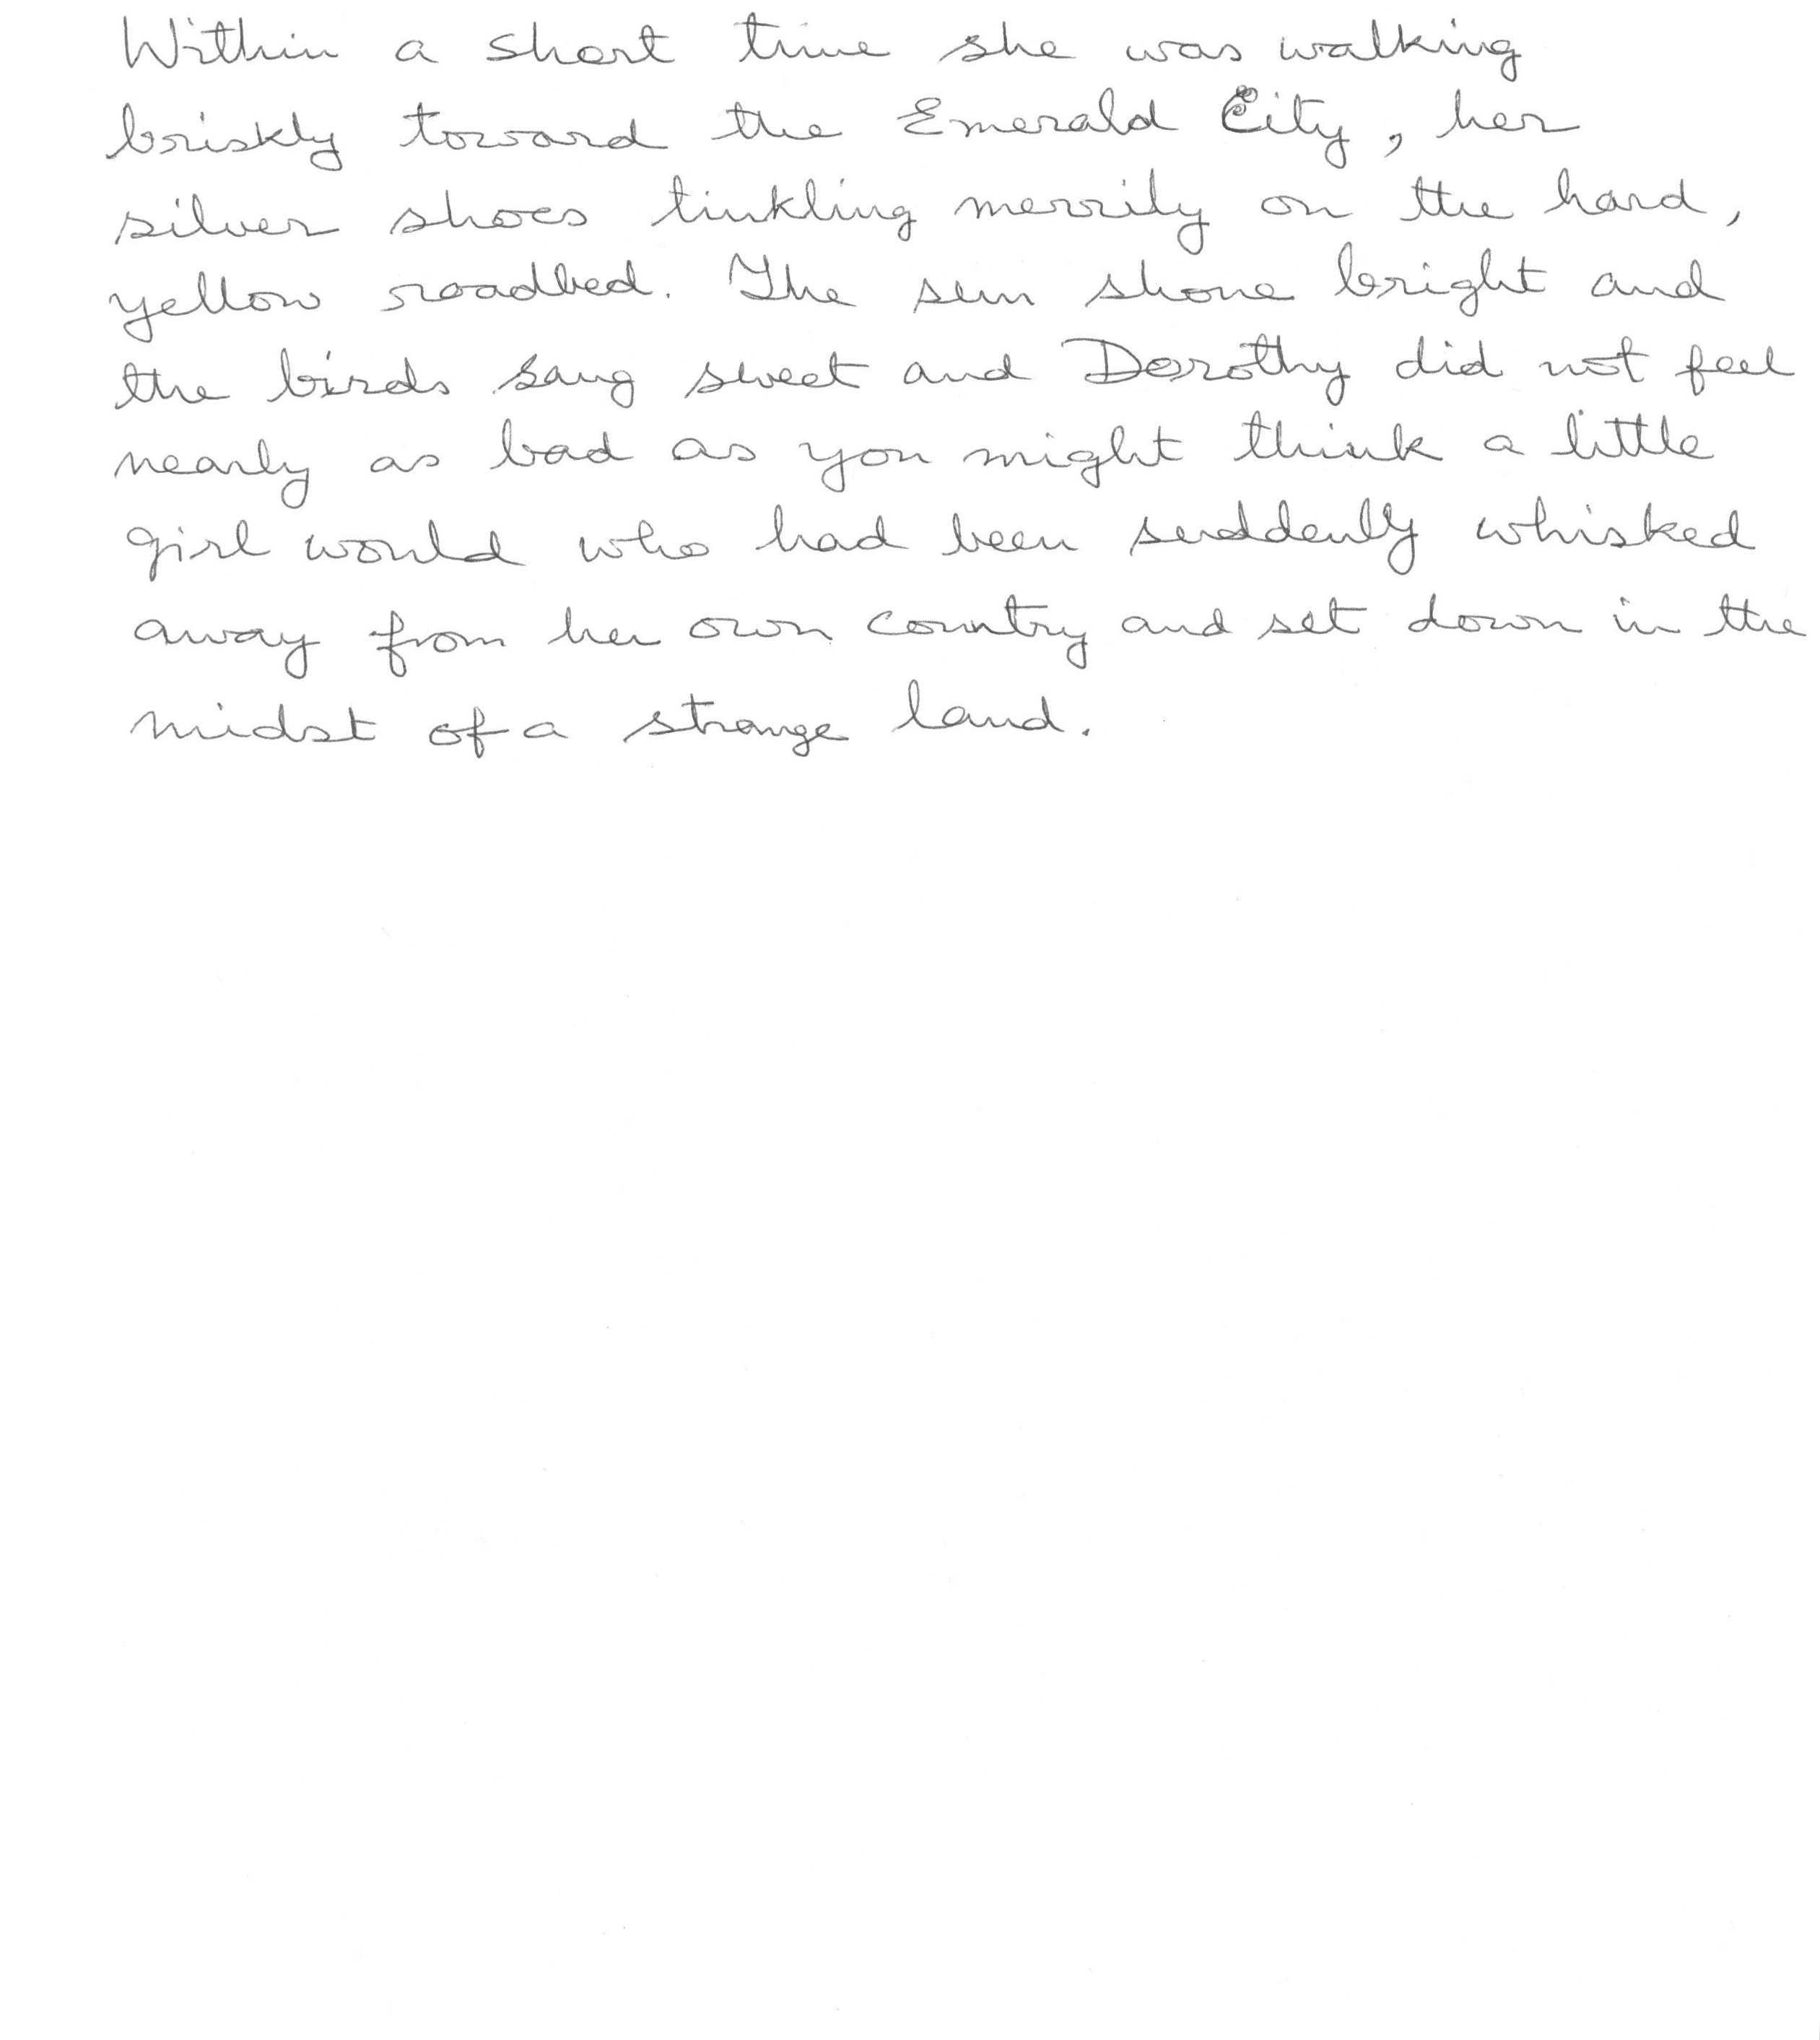 Within a short time she was walking
briskly toward the Emerald City, her
silver shoes tinkling merrily on the hard,
yellow roadbed. The sun shone bright and
the birds sang sweet and Dorothy did not feel
nearly as bad as you might think a little
girl would who had been suddenly whisked
away from her own country and set down in the
midst of a strange land.